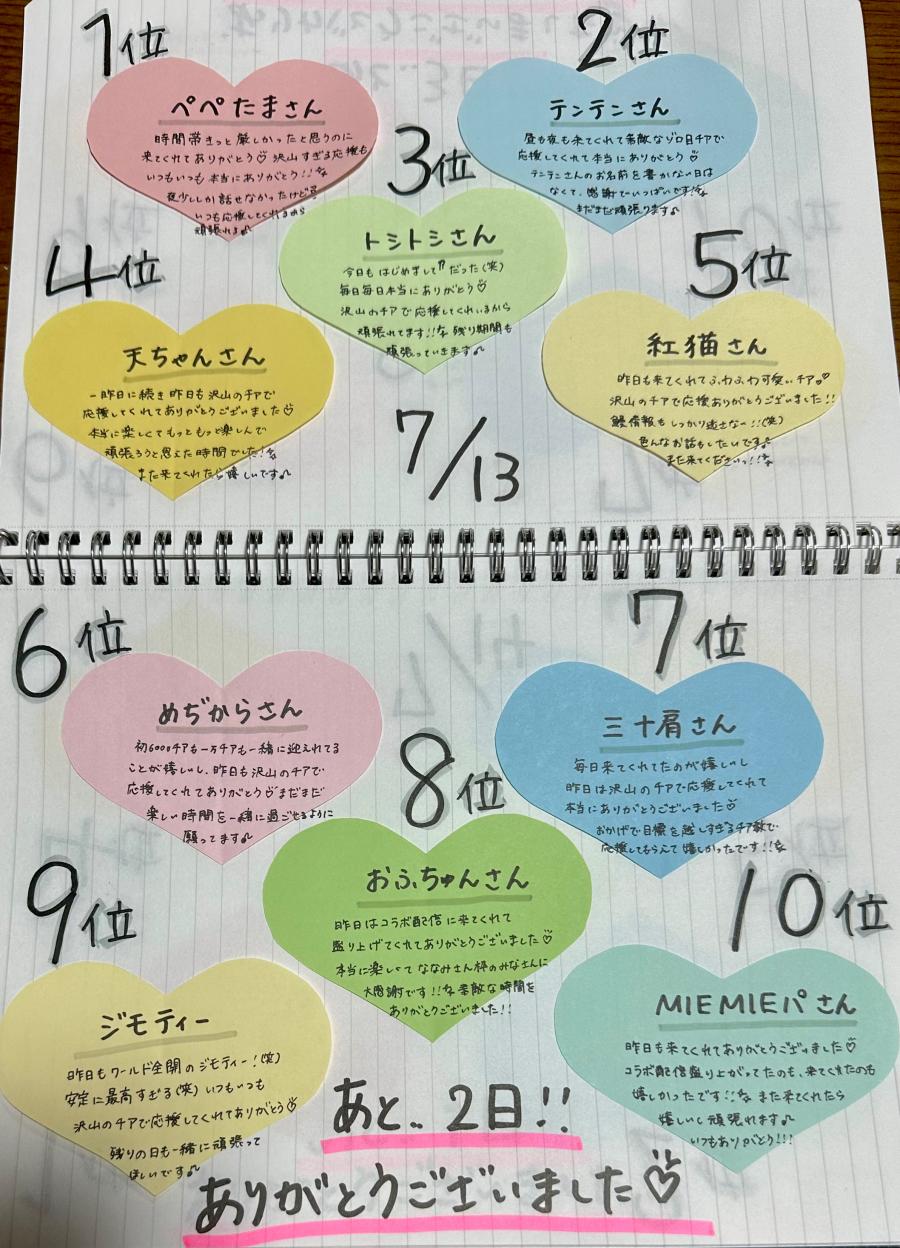 1位
ペペたまさん
時間帯きっと厳しかったと思うのに
来てくれてありがとう♡ 沢山すぎる応援も
いつもいつも本当にありがとう!!
夜少ししか話せなかったけど
いつも応援してくれるから
頑張れる♪
2位
テンテンさん
昼も夜も来てくれて素敵なゾロ目チアで
応援してくれて本当にありがとう♡
テンテンさんのお名前を書かない日は
なくて、感謝でいっぱいです!
まだまだ頑張ります♪
3位
トシトシさん
今日もはじめまして!?だった(笑)
毎日毎日本当にありがとう♡
沢山のチアで応援してくれいるから
頑張れてます!! 残り期間も
頑張っていきます♪
4位
天ちゃんさん
一昨日に続き昨日も沢山のチアで
応援してくれてありがとうございました♡
本当に楽しくてもっともっと楽しんで
頑張ろうと思えた時間でした!
また来てくれたら嬉しいです♪
5位
紅猫さん
昨日も来てくれてふわふわ可愛いチア♡
沢山のチアで応援ありがとうございました!!
鰻情報もしっかり逃さない!!(笑)
色んなお話もしたいです
また来てくださいっ!!
7/13
6位
めぢからさん
初6000チアも一万チアも一緒に迎えれてる
ことが嬉しいし、昨日も沢山のチアで
応援してくれてありがとう♡まだまだ
楽しい時間を一緒に過ごせるように
願ってます♪
7位
三十肩さん
毎日来てくれてたのが嬉しいし
昨日は沢山のチアで応援してくれて
本当にありがとうございました♡
おかげで目標を越しすぎるチア数で
応援してもらえて嬉しかったです!!
8位
おふちゃんさん
昨日はコラボ配信に来てくれて
盛り上げてくれてありがとうございました♡
本当に楽しくてななみさん枠のみなさんに
大感謝です!! 素敵な時間を
ありがとうございました!!
9位
ジモティー
昨日もワールド全開のジモティー!(笑)
安定に最高すぎる(笑) いつもいつも
沢山のチアで応援してくれてありがとう♡
残りの日も一緒に頑張って
ほしいです♪
10位
MIEMIEパさん
昨日も来てくれてありがとうございました♡
コラボ配信盛り上がってたのも、来てくれたのも
嬉しかったです!! また来てくれたら
嬉しいし頑張れます♪
いつもありがとう!!!
あと..2日!!
ありがとうございました♡